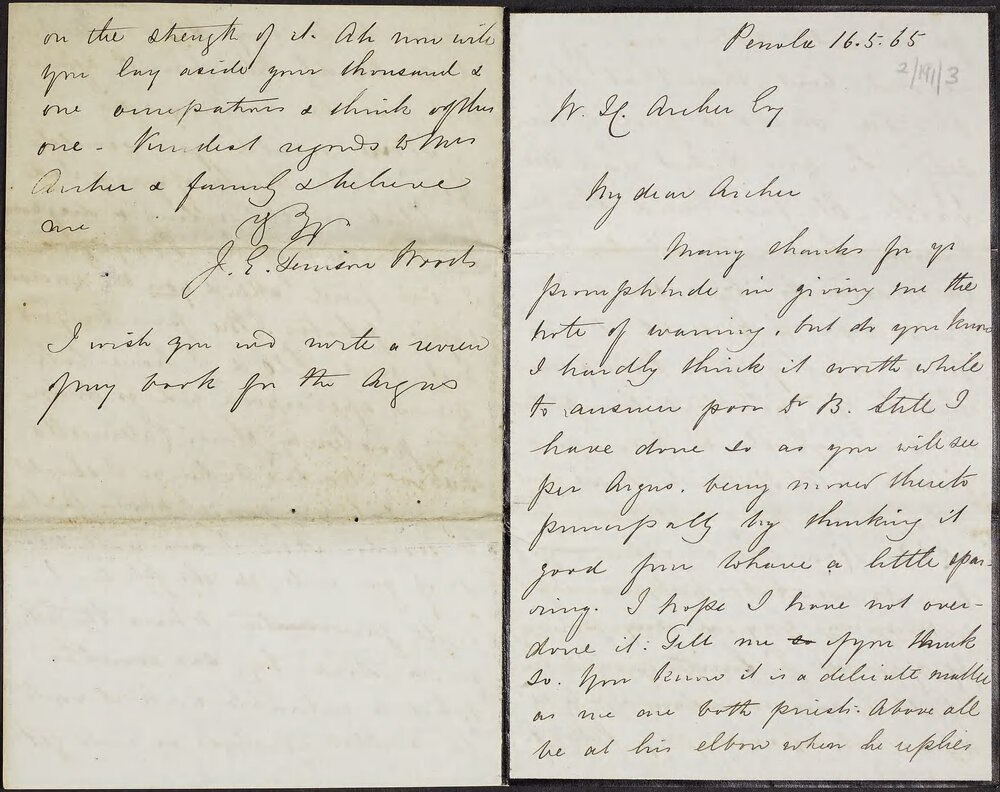 Penola 16.5.65
2/191/3
W. H. Archer Esq
My dear Archer
Many thanks for yr
promptitude in giving me the
note of warning, but do you know
I hardly think it worth while
to answer poor Dr B. Still I
have done so as you will see
per Argus, being moved thereto
principally by thinking it
good fun to have a little spar-
ring. I hope I have not over-
done it: Tell me so if you think
so. You know it is a delicate matter
as we are both priests. Above all
be at his elbow when he replies
on the strength of it. Ah now will
you lay aside your thousand &
one occupations & think of this
one - Kindest regards to Mrs
Archer & family & believe
me
J. E. Tenison Woods
I wish you wd write a review
of my book for the Argus